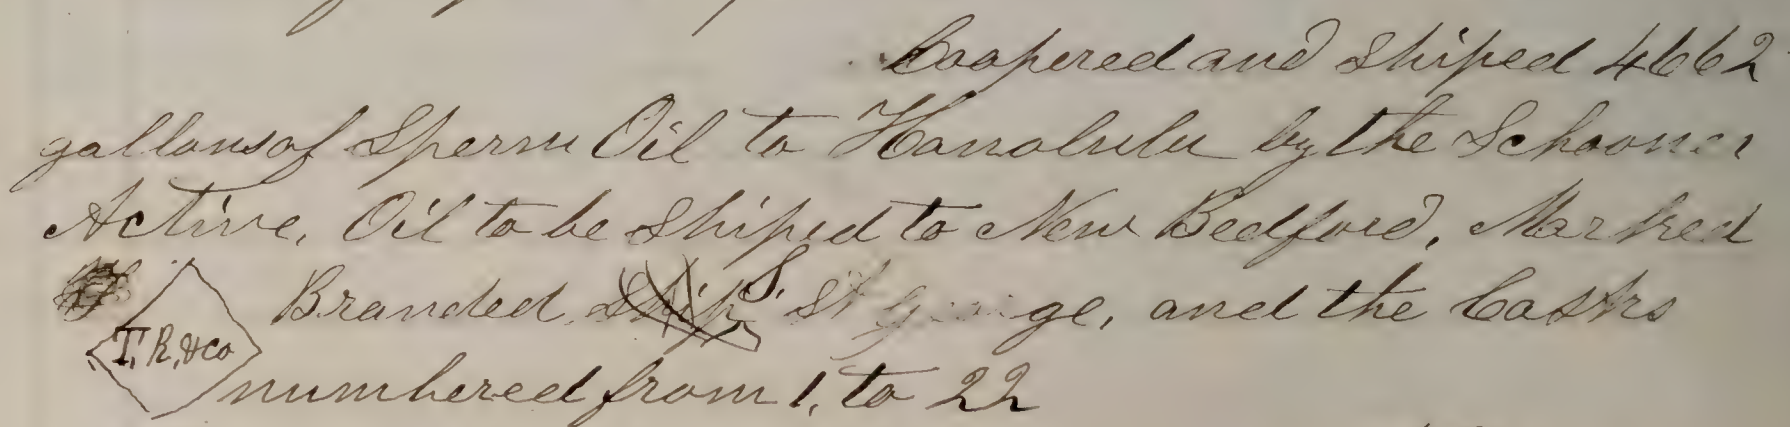 Coopered and Shiped 4662
gallons of Sperm Oil to Honolulu by the Schooner
Active, Oil to be Shiped to New Bedford, Marked
T, R, & Co Branded, Ship S. St George, and the Casks
numbered from 1, to 22